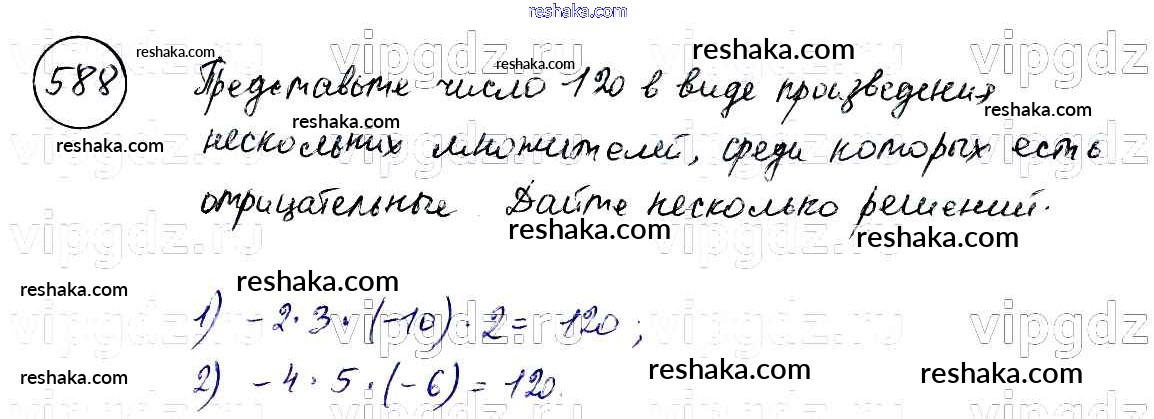 reshaka.com
588 Представьте число 120 в виде произведения
нескольких множителей, среди которых есть
отрицательные. Дайте несколько решений.
1) -2·3·(-10)·2 = 120;
2) -4·5·(-6) = 120.
vipgdz.ru vipgdz.ru vipgdz.ru vipgdz
reshaka.com reshaka.com reshaka.com
reshaka.com reshaka.com reshaka.com
reshaka.com reshaka.com
vipgdz.ru vipgdz.ru vipgdz.ru vipgdz
reshaka.com reshaka.com
vipgdz.ru vipgdz.ru vipgdz.ru vipgdz
reshaka.com reshaka.com reshaka.com